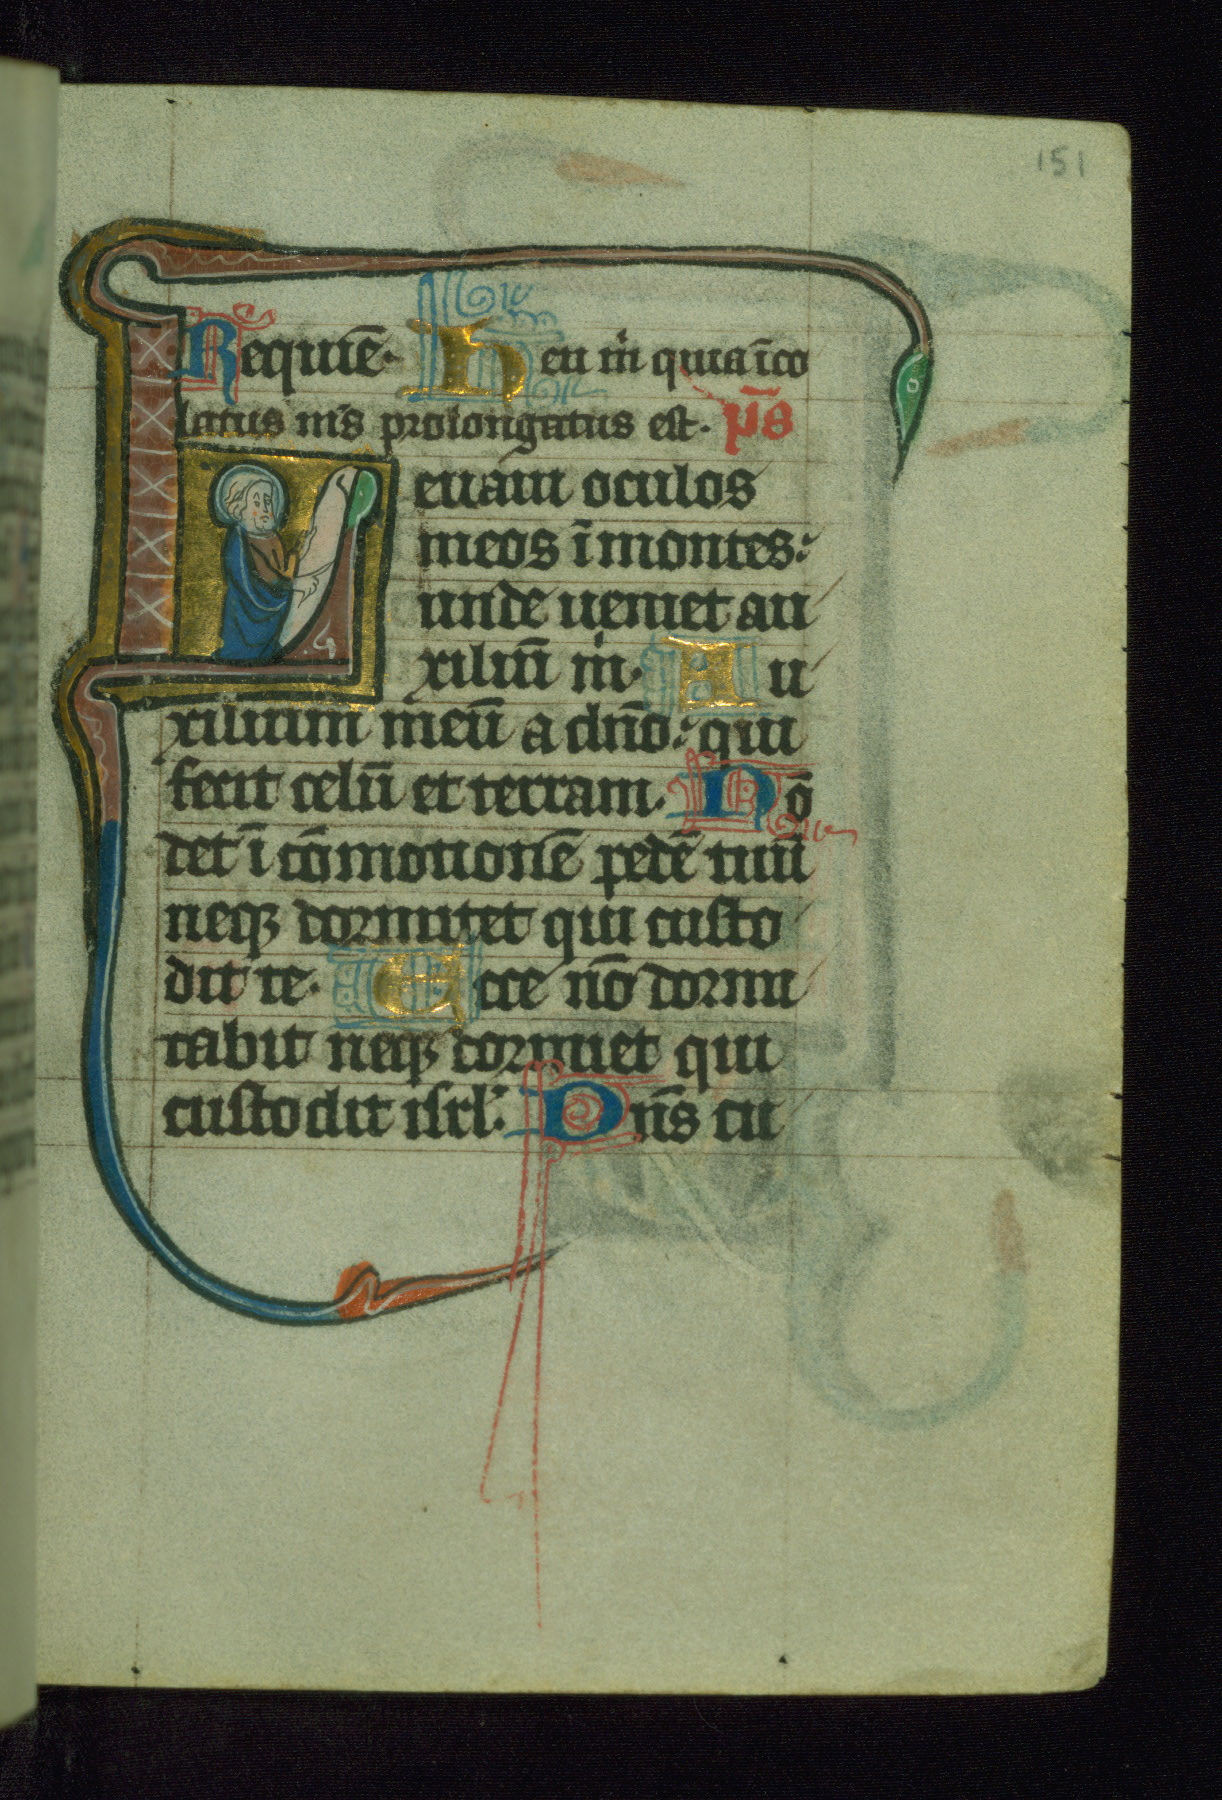 151
Requiē. Heu m̄ quia īco
latus m̄s prolongatus est. p̄s
Leuaui oculos
meos ī montes:
unde ueniet au
xiliū m̄. Au
xilium meū a dn̄o: qui
fecit celū et terram. Nō
det ī cōmotionē pedē tuū
neq₃ dormitet qui custo
dit te. Ecce nō dormi
tabit neq₃ dormiet qui
custodit isrl: Dn̄s cu